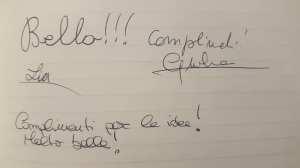 Bello!!! Complimdi!
Lia Giulia
Complimenti per le idee!
Molto belle!